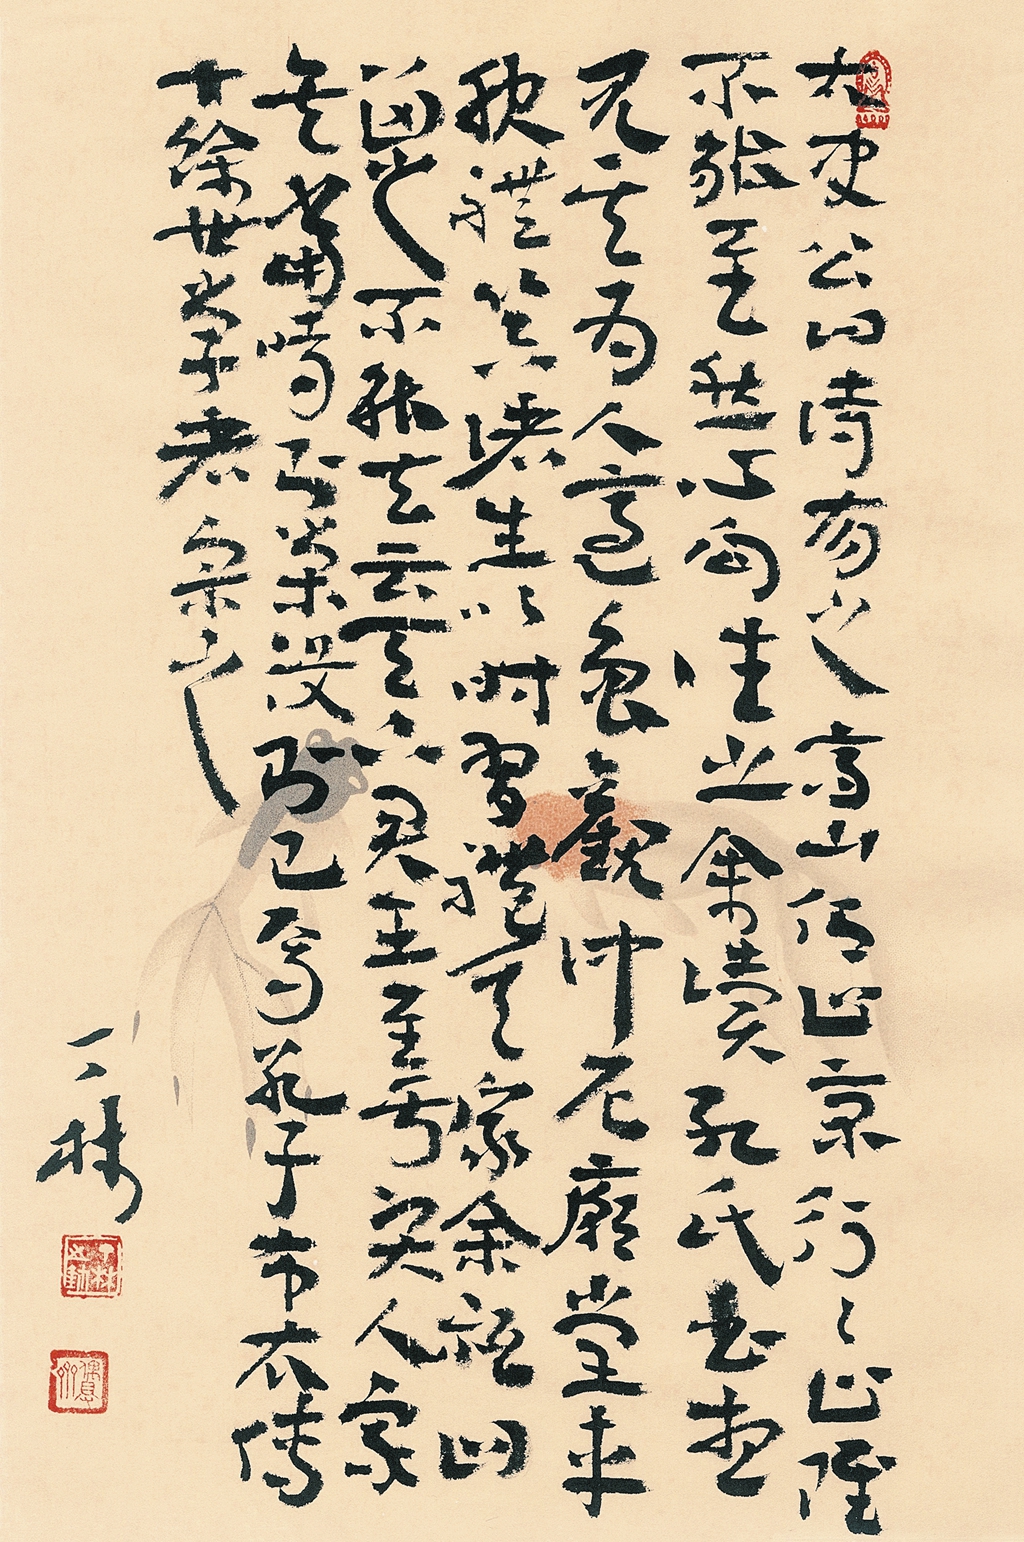 太史公曰詩有之高山仰止景行〻止雖
不能至然心向往之余讀孔氏書想
見其為人適魯觀仲尼廟堂車
服禮器諸生以時習禮其家余祗回
留之不能去云天下君王至于賢人衆
矣當時則榮沒則已焉孔子布衣傳
十餘世學者宗之